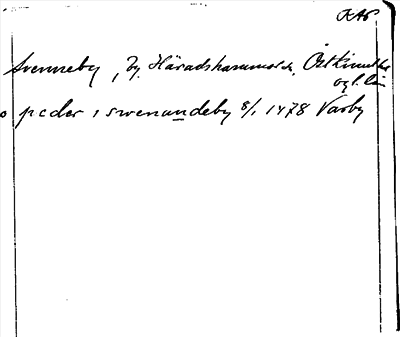 KAP
Svenneby, by, Häradshammar sn, Östkinds hd
ög l. län
peder i swenandeby 8/1 1478 Varby